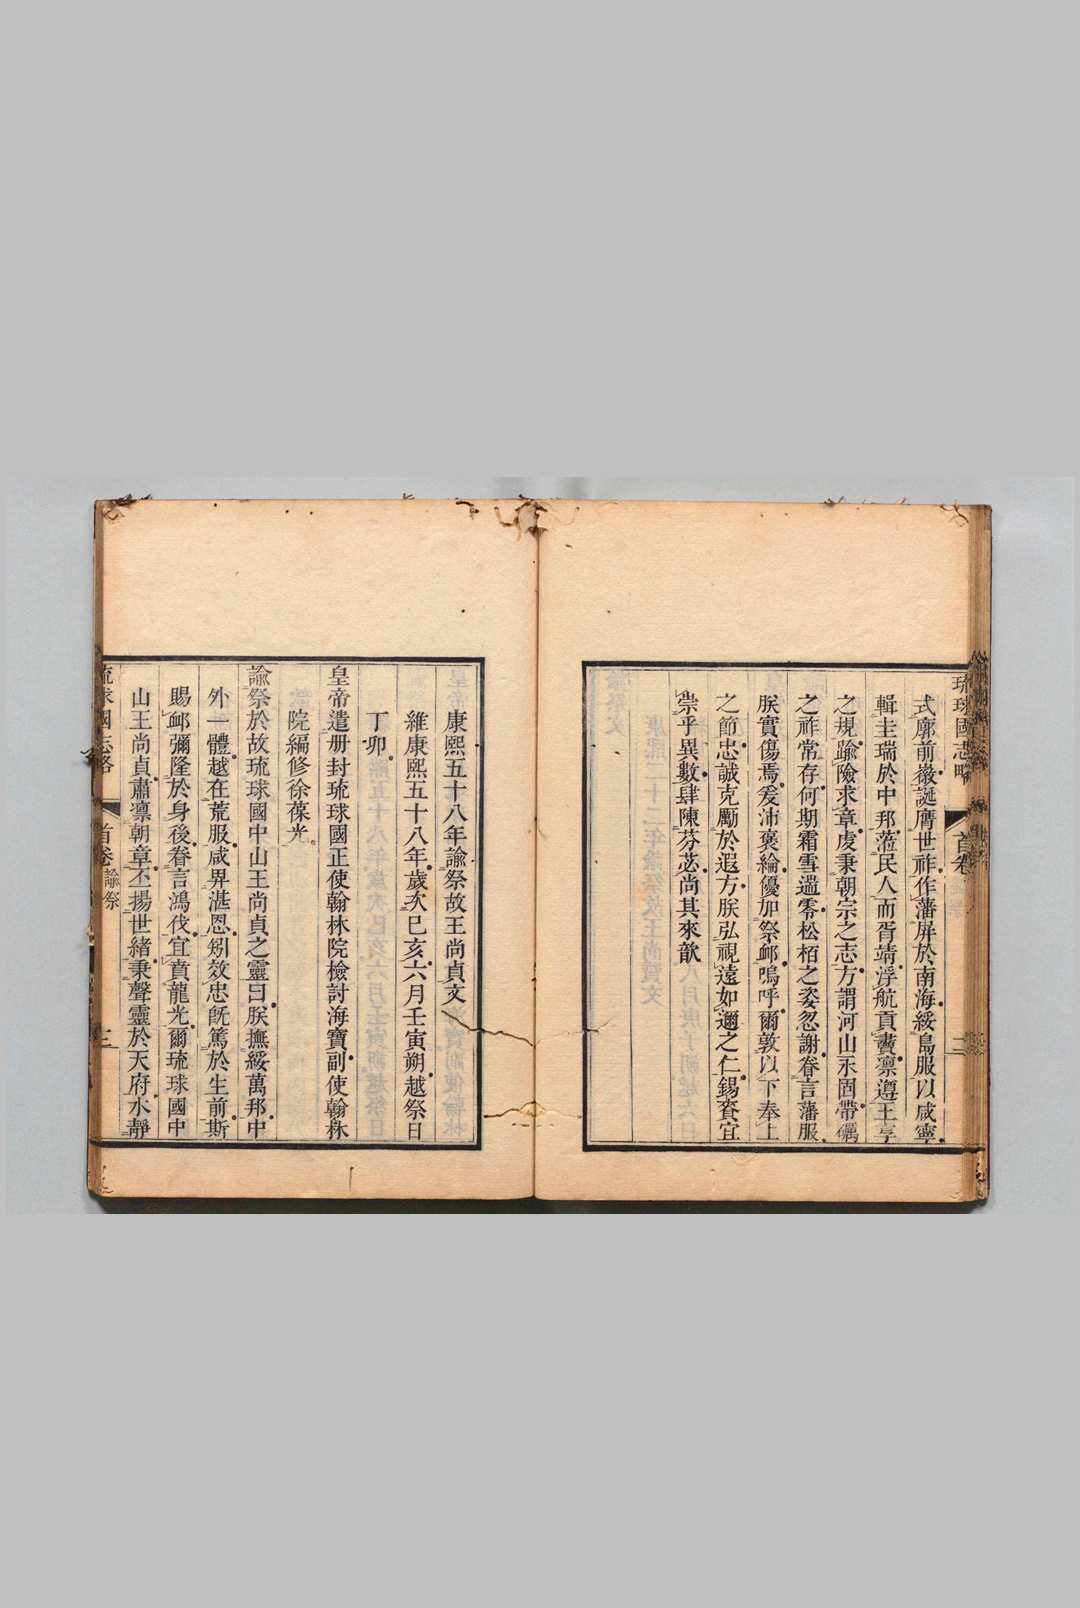 琉球國志略 首卷
式廓前徽誕膺世祚作藩屏於南海綏島服以咸寧
輯圭瑞於中邦蒞民人而胥靖浮航頁賮凛遵王享
之規踰險求章虔秉朝宗之志方謂河山永固帶礪
之祚常存何期霜雪遄零松栢之姿忽謝眷言藩服
朕實傷焉爰沛褒綸優加祭邺嗚呼爾敦以下奉上
之節忠誠克勵於遐方朕弘視遠如邇之仁錫賚宜
崇乎異數肆陳芬苾尚其來歆
康熙五十八年諭祭故王尚貞文
維康熙五十八年歲次己亥六月壬寅朔越祭日
丁卯
皇帝遣册封琉球國正使翰林院檢討海寶副使翰林
院編修徐葆光
諭祭於故琉球國中山王尚貞之靈曰朕撫綏萬邦中
外一體越在荒服咸畀湛恩矧效忠旣篤於生前斯
賜邺彌隆於身後眷言鴻伐宜賁龍光爾琉球國中
山王尚貞肅凛朝章丕揚世緒秉聲靈於天府水靜
琉球國志略 首卷 諭祭 三